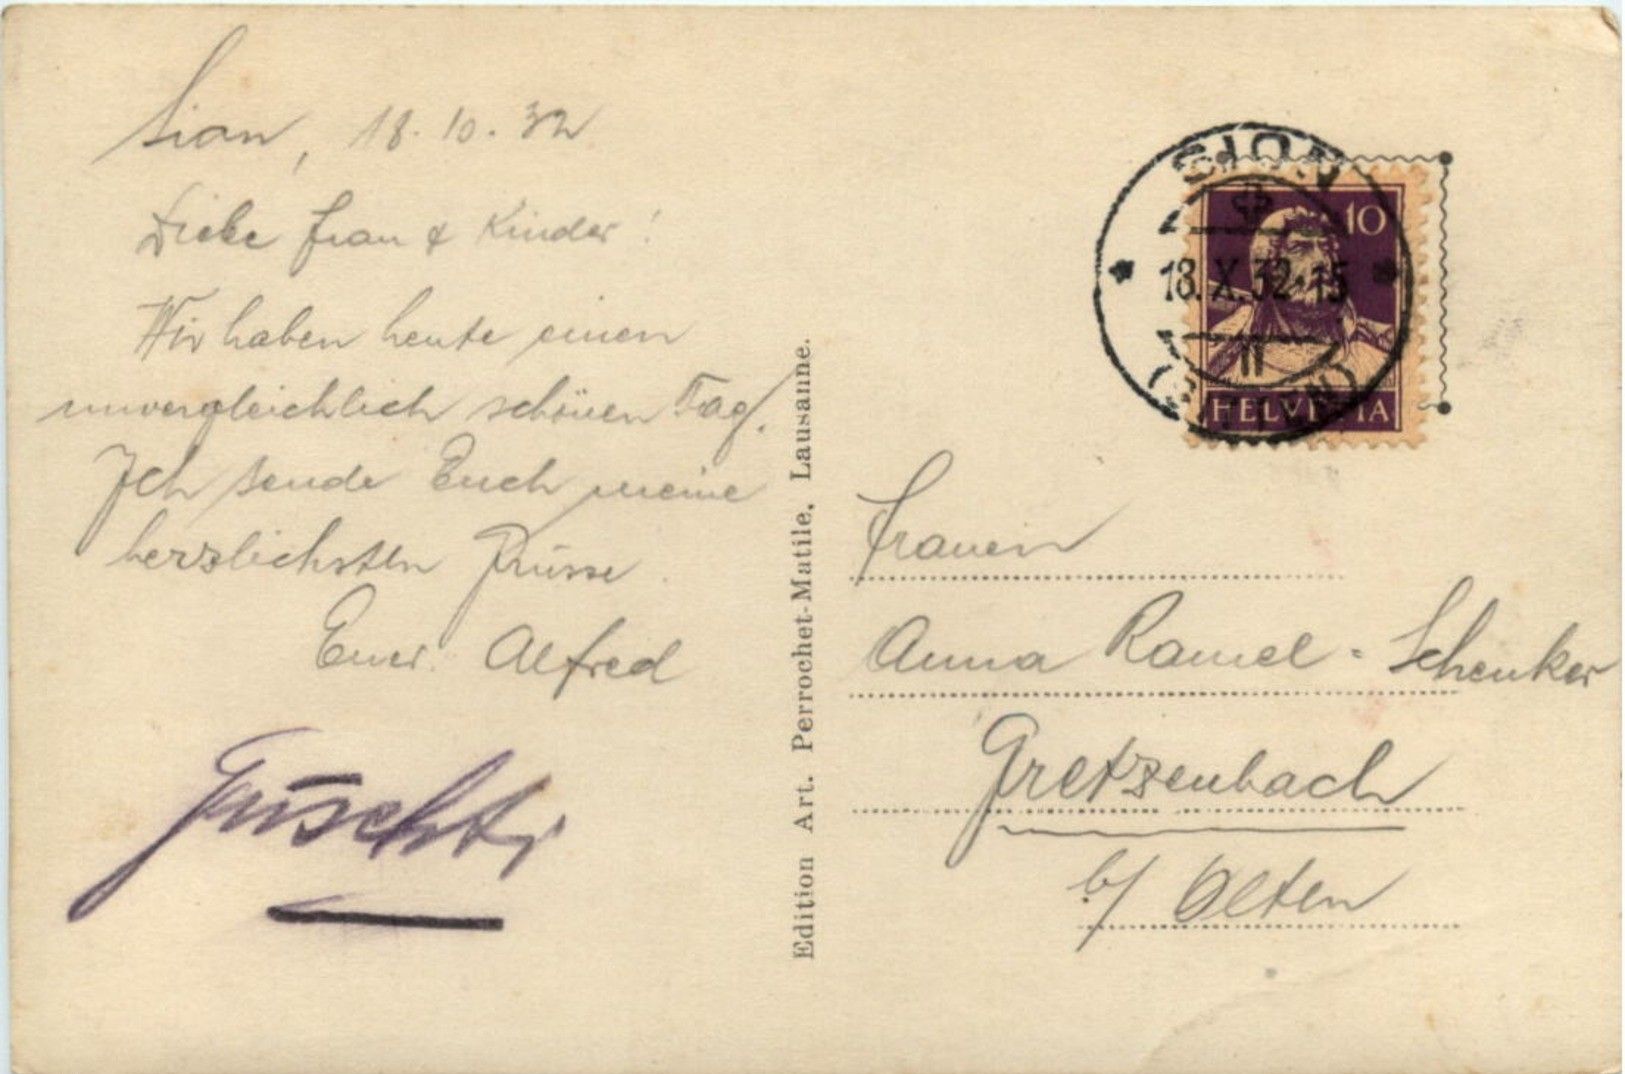 Sion, 18. 10. 32
Liebe Frau & Kinder!
Wir haben heute einen
unvergleichlich schönen Tag.
Ich sende Euch meine
herzlichsten Grüsse.
Euer Alfred
Edition Art. Perrochet-Matile, Lausanne.
SION
18.X.32-15
II
(SITTEN)
10
HELVETIA
Frauen
Anna Ramel-Schenker
Gretzenbach
b/ Olten